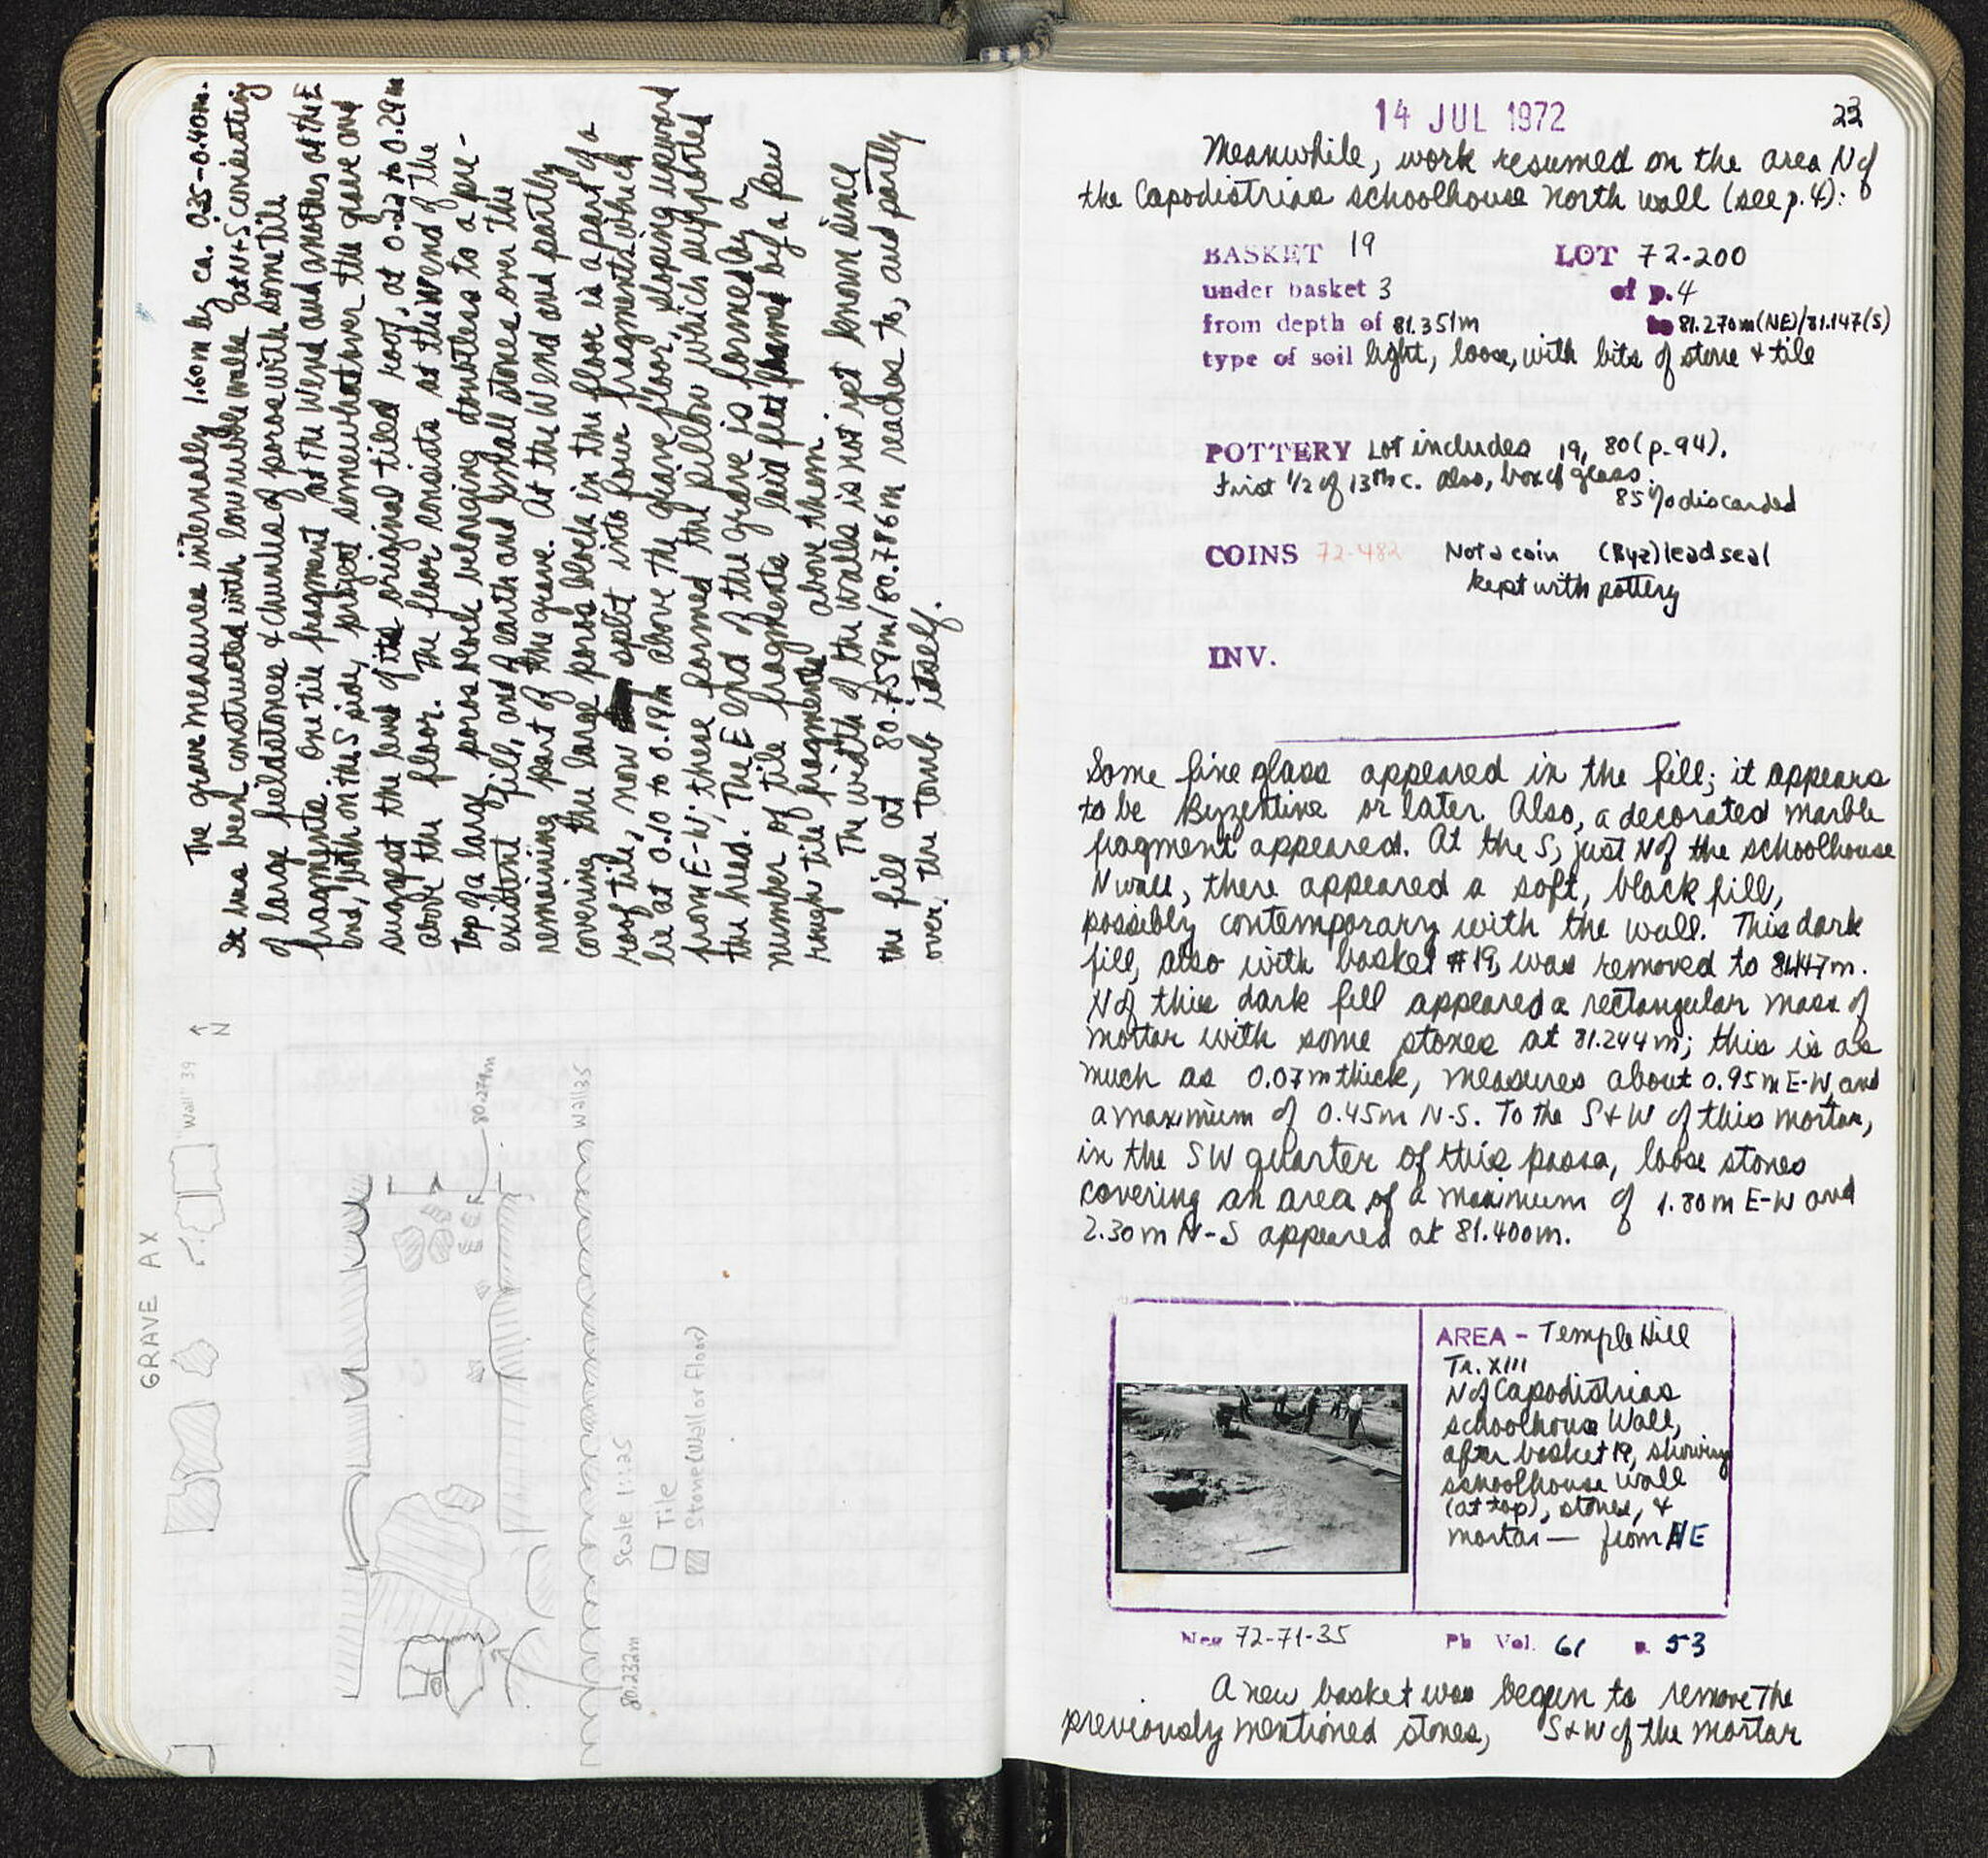 The grave measures internally 1.60m by ca. 0.35-0.40m.
It has been constructed with low rubble walls at N+S consisting
of large fieldstones & chunks of poros with some tile
fragments. One tile fragment at the W end and another at the E
end, both on the S side, project somewhat over the grave and
suggest the level of its original tiled roof, at 0.22 to 0.29m
above the floor. The floor consists at the W end of the
top of a large poros block belonging doubtless to a pre-
existent fill, and of earth and small stones over the
remaining part of the grave. At the W end and partly
covering the large poros block in the floor is a part of a
roof tile, now split into four fragments which
lie at 0.10 to 0.19m above the grave floor, sloping upward
from E-W; these formed the pillow which supported
the head. The E end of the grave is formed by a
number of tile fragments laid flat by a few
rough tile fragments above them.
The width of the walls is not yet known since
the fill at 80.759m/80.786m reaches to, and partly
over, the tomb itself.
GRAVE AX
"Wall" 39
N
80.279m
Wall 35
Scale 1:25
Tile
Stone (Wall or Floor)
80.232m
14 JUL 1972
23
Meanwhile, work resumed on the area N of
the Capodistrias schoolhouse North wall (see p. 4):
BASKET 19 LOT 72-200
under basket 3 of p. 4
from depth of 81.351m to 81.270m (NE)/81.147(S)
type of soil light, loose, with bits of stone & tile
POTTERY Lot includes 19, 80 (p. 94).
First 1/2 of 13th c. Also, box of glass.
85% discarded
COINS 72-482 Not a coin (Byz) lead seal
kept with pottery
INV.
Some fine glass appeared in the fill; it appears
to be Byzentine or later. Also, a decorated marble
fragment appeared. At the S, just N of the schoolhouse
N wall, there appeared a soft, black fill,
possibly contemporary with the wall. This dark
fill, also with basket #19, was removed to 81.147m.
N of this dark fill appeared a rectangular mass of
mortar with some stones at 81.244m; this is as
much as 0.07m thick, measures about 0.95m E-W, and
a maximum of 0.45m N-S. To the S & W of this mortar,
in the SW quarter of this passa, loose stones
covering an area of a maximum of 1.80m E-W and
2.30m N-S appeared at 81.400m.
AREA - Temple Hill
Tr. XIII
N of Capodistrias
schoolhouse Wall,
after basket 19, showing
schoolhouse wall
(at top), stones, &
mortar — from NE
Neg 72-71-35 Ph Vol. 61 p. 53
A new basket was begun to remove the
previously mentioned stones, S & W of the mortar